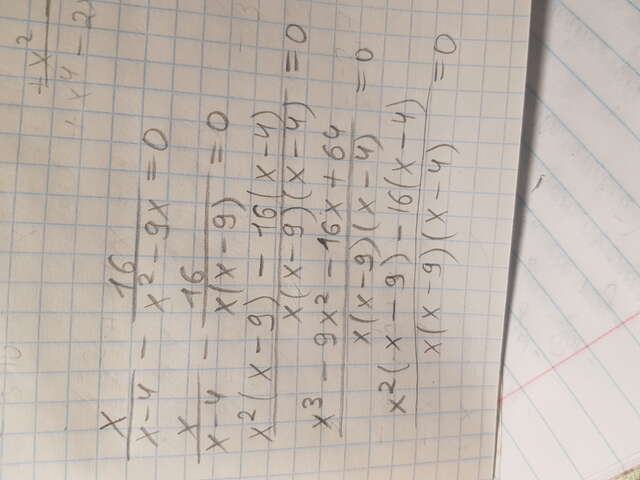 +x²
x⁴ - 2
x/(x-4) - 16/(x²-9x) = 0
x/(x-4) - 16/(x(x-9)) = 0
(x²(x-9) - 16(x-4))/(x(x-9)(x-4)) = 0
(x³ - 9x² - 16x + 64)/(x(x-9)(x-4)) = 0
(x²(x-9) - 16(x-4))/(x(x-9)(x-4)) = 0